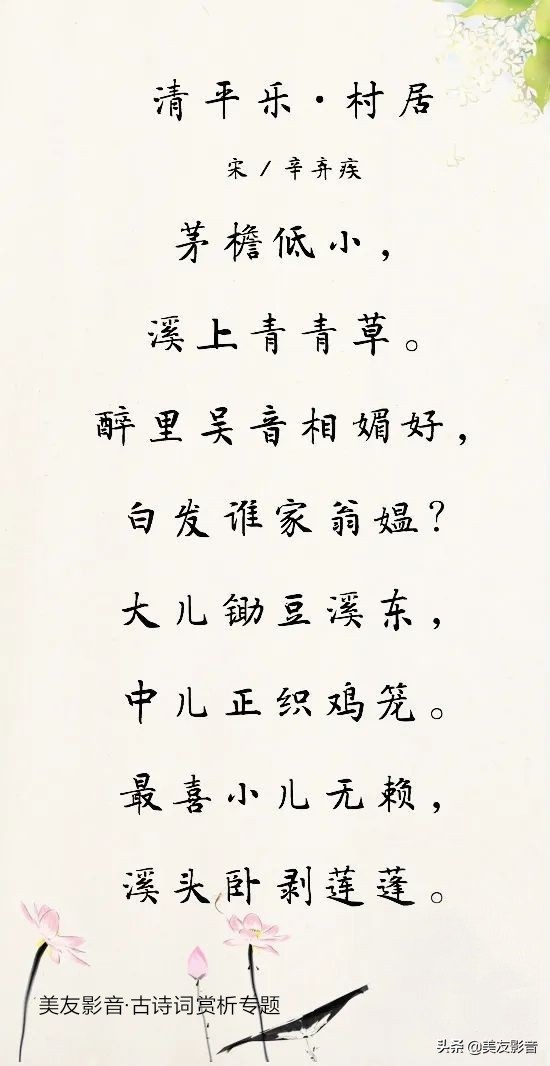 清平乐·村居
宋/辛弃疾
茅檐低小，
溪上青青草。
醉里吴音相媚好，
白发谁家翁媪？
大儿锄豆溪东，
中儿正织鸡笼。
最喜小儿无赖，
溪头卧剥莲蓬。
美友影音·古诗词赏析专题
头条 @美友影音